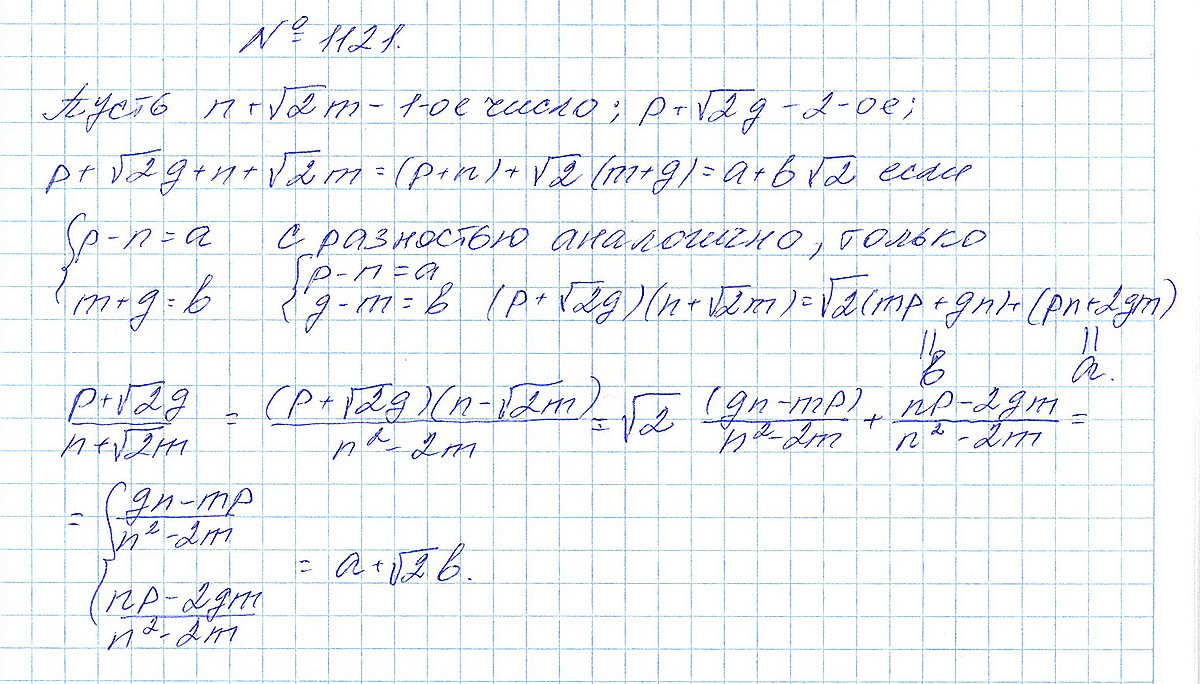 № 1121.
Пусть n+√2m – 1-ое число; p+√2g – 2-ое;
p+√2g+n+√2m=(p+n)+√2(m+g)=a+b√2 если
{p-n=a с разностью аналогично, только
{p-n=a
m+g=b g-m=b (p+√2g)(n+√2m)=√2(mp+gn)+(pn+2gm)
|| ||
b a.
(p+√2g)/(n+√2m) = (p+√2g)(n-√2m)/(n²-2m) = √2 (gn-mp)/(n²-2m) + (np-2gm)/(n²-2m) =
= {(gn-mp)/(n²-2m)
= a+√2b.
(np-2gm)/(n²-2m)